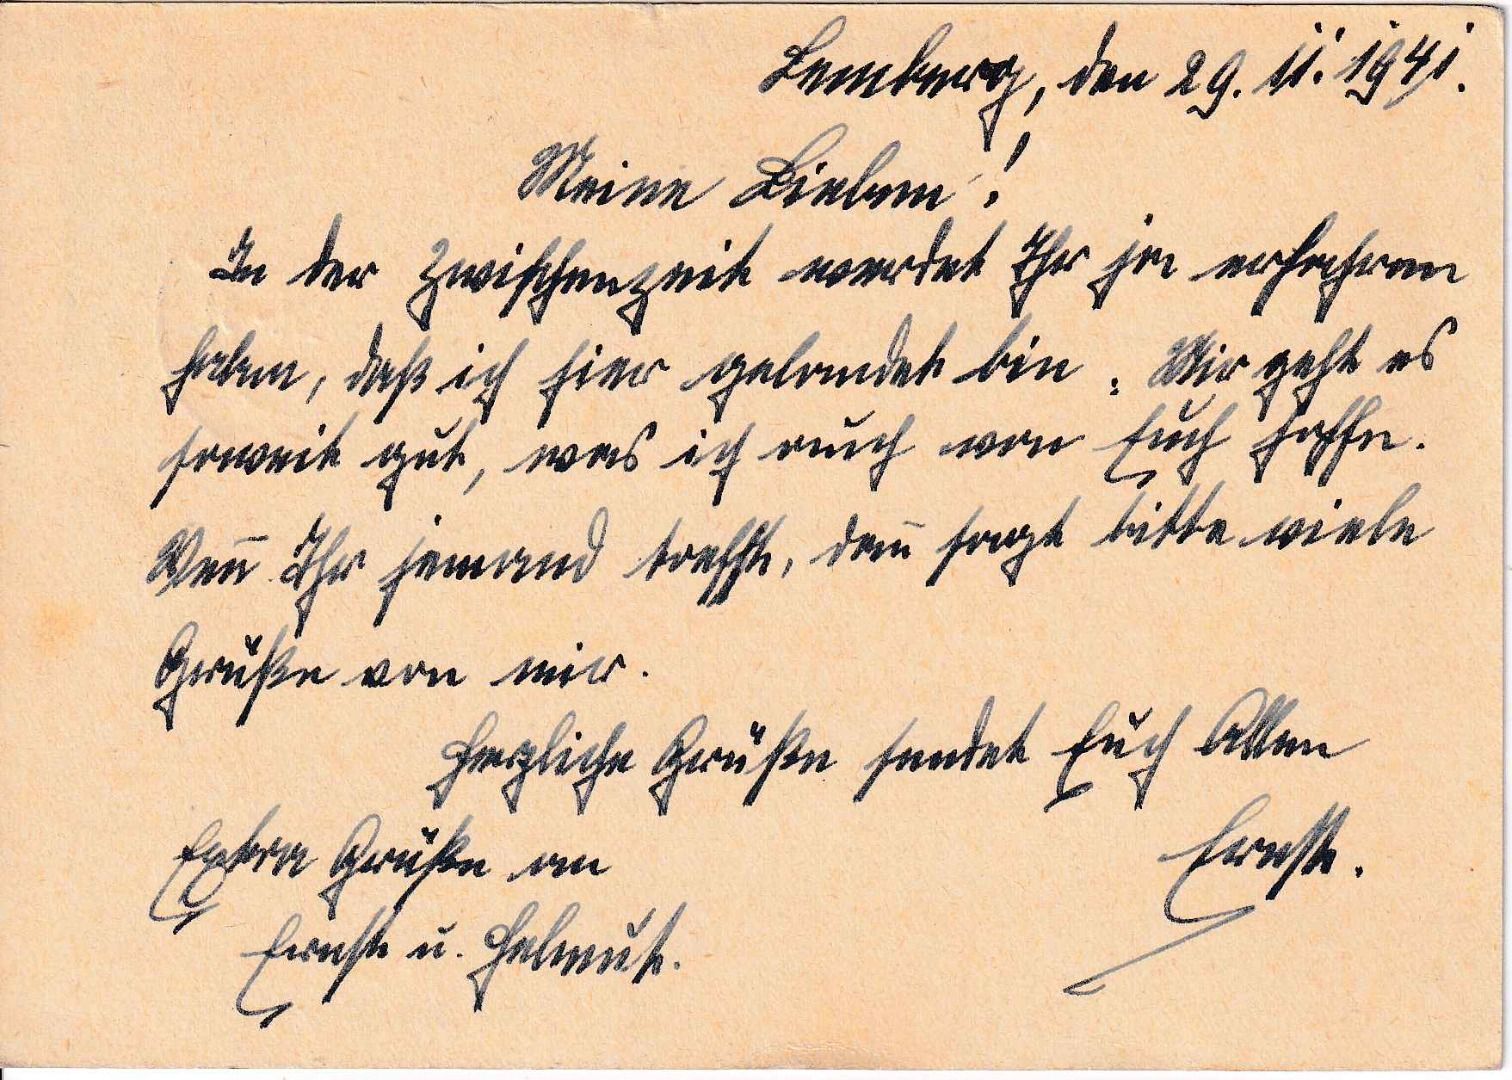 Lemberg, den 29. 11. 1941.
Meine Lieben!
In der Zwischenzeit werdet Ihr ja erfahren
haben, daß ich hier gelandet bin. Mir geht es
soweit gut, was ich auch von Euch hoffe.
Wen̅ Ihr jemand trefft, dan̅ sagt bitte viele
Grüße von mir.
Herzliche Grüße sendet Euch Allen
Ernst.
Extra Grüße an
Ernst u. Helmut.